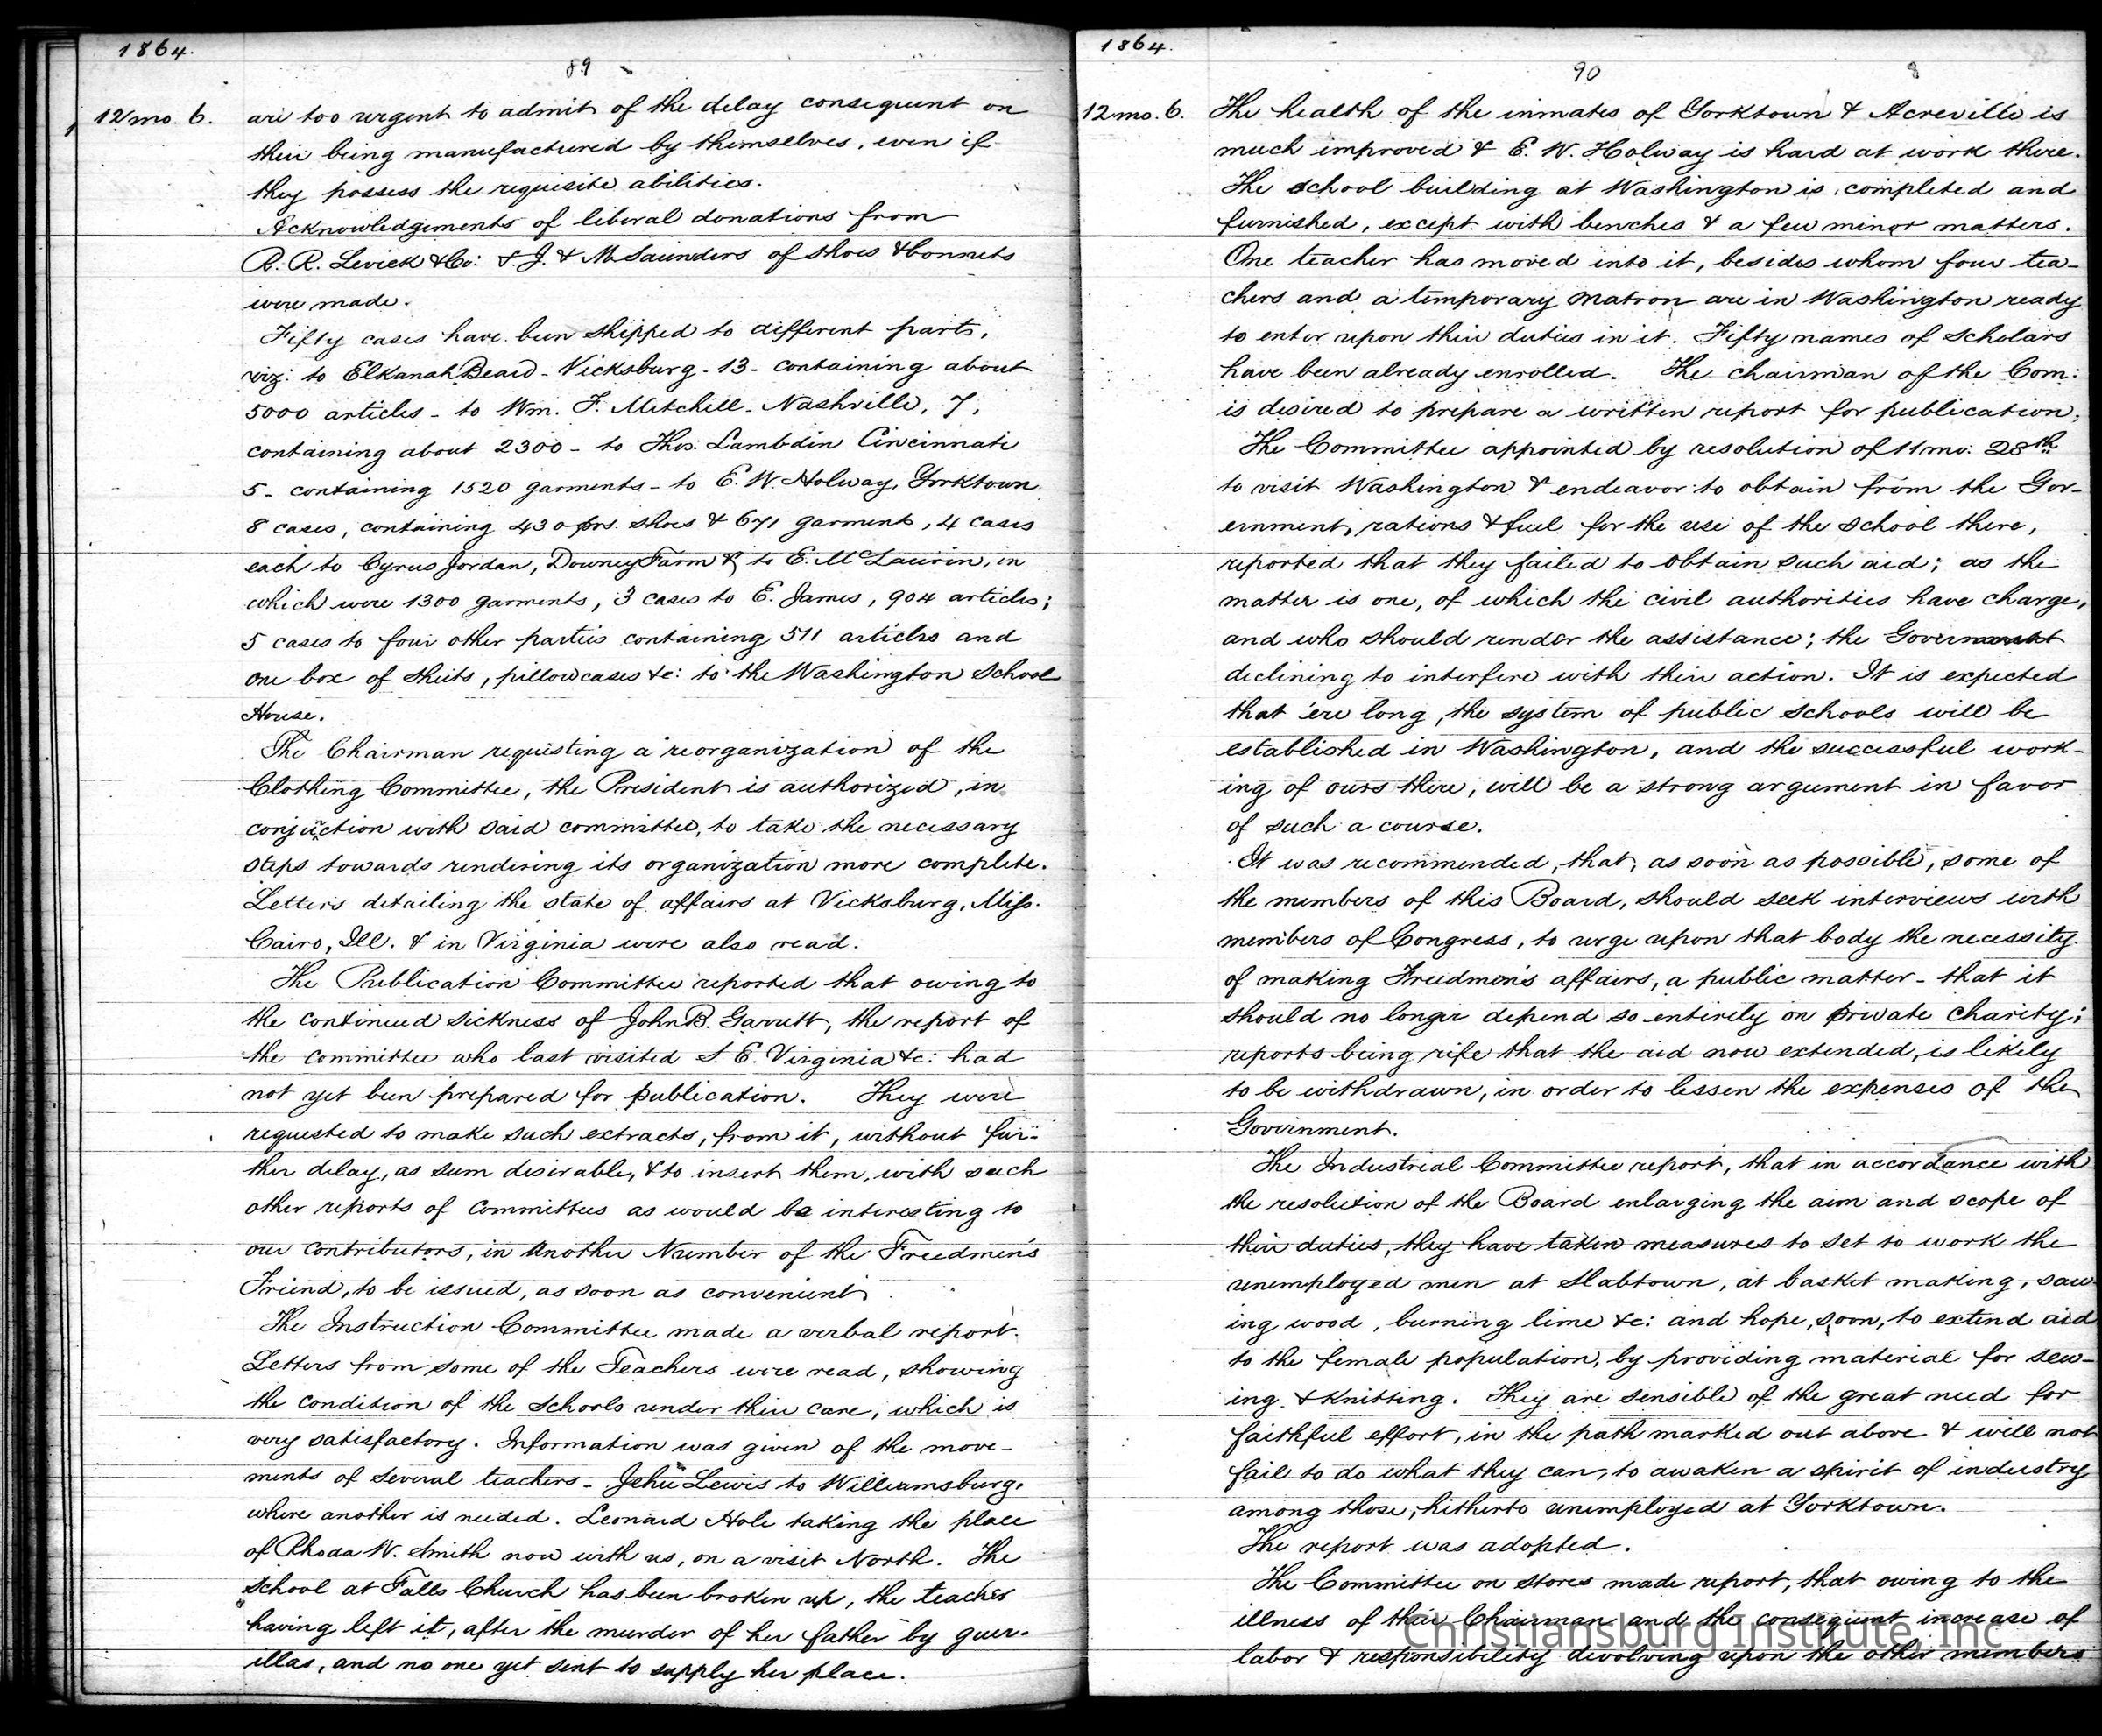 1864.
89
12 mo. 6. are too urgent to admit of the delay consequent on
their being manufactured by themselves, even if
they possess the requisite abilities.
Acknowledgements of liberal donations from
R. R. Levick & Co: & J. & M. Saunders of shoes & bonnets
were made.
Fifty cases have been shipped to different parts,
viz: to Elkanah Beard - Vicksburg - 13 - containing about
5000 articles - to Wm. F. Mitchell - Nashville, 7,
containing about 2300 - to Thos: Lambdin Cincinnati
5 - containing 1520 garments - to E. W. Holway, Yorktown
8 cases, containing 430 prs. shoes & 671 garments, 4 cases
each to Cyrus Jordan, Downey Farm & to E. McLaurin, in
which were 1300 garments, 3 cases to E. James, 904 articles;
5 cases to four other parties containing 511 articles and
one box of sheets, pillowcases &c: to the Washington School
House.
The Chairman requesting a reorganization of the
Clothing Committee, the President is authorized, in
conjunction with said committee, to take the necessary
steps towards rendering its organization more complete.
Letters detailing the state of affairs at Vicksburg, Miss.
Cairo, Ill. & in Virginia were also read.
The Publication Committee reported that owing to
the continued sickness of John B. Garrett, the report of
the committee who last visited S. E. Virginia &c: had
not yet been prepared for publication. They were
requested to make such extracts, from it, without fur-
ther delay, as seem desirable, & to insert them, with such
other reports of committees as would be interesting to
our contributors, in another Number of the Freedmen's
Friend, to be issued, as soon as convenient.
The Instruction Committee made a verbal report.
Letters from some of the Teachers were read, showing
the condition of the schools under their care, which is
very satisfactory. Information was given of the move-
ments of several teachers - Jehu Lewis to Williamsburg,
where another is needed. Leonard Hole taking the place
of Rhoda W. Smith now with us, on a visit North. The
school at Falls Church has been broken up, the teacher
having left it, after the murder of her father by guer-
illas, and no one yet sent to supply her place.
1864.
90 8
12 mo. 6. The health of the inmates of Yorktown & Acreville is
much improved & E. W. Holway is hard at work there.
The school building at Washington is completed and
furnished, except with benches & a few minor matters.
One teacher has moved into it, besides whom four tea-
chers and a temporary matron are in Washington ready
to enter upon their duties in it. Fifty names of scholars
have been already enrolled. The chairman of the Com:
is desired to prepare a written report for publication.
The Committee appointed by resolution of 11 mo: 28th
to visit Washington & endeavor to obtain from the Gov-
ernment, rations & fuel for the use of the school there,
reported that they failed to obtain such aid; as the
matter is one, of which the civil authorities have charge,
and who should render the assistance; the Government
declining to interfere with their action. It is expected
that 'ere long, the system of public schools will be
established in Washington, and the successful work-
ing of ours there, will be a strong argument in favor
of such a course.
It was recommended, that, as soon as possible, some of
the members of this Board, should seek interviews with
members of Congress, to urge upon that body the necessity
of making Freedmen's affairs, a public matter - that it
should no longer depend so entirely on private charity;
reports being rife that the aid now extended, is likely
to be withdrawn, in order to lessen the expenses of the
Government.
The Industrial Committee report, that in accordance with
the resolution of the Board enlarging the aim and scope of
their duties, they have taken measures to set to work the
unemployed men at Slabtown, at basket making, saw-
ing wood, burning lime &c: and hope, soon, to extend aid
to the female population, by providing material for sew-
ing & knitting. They are sensible of the great need for
faithful effort, in the path marked out above & will not
fail to do what they can, to awaken a spirit of industry
among those, hitherto unemployed at Yorktown.
The report was adopted.
The Committee on Stores made report, that owing to the
illness of their Chairman and the consequent increase of
labor & responsibility devolving upon the other members
Christiansburg Institute, Inc